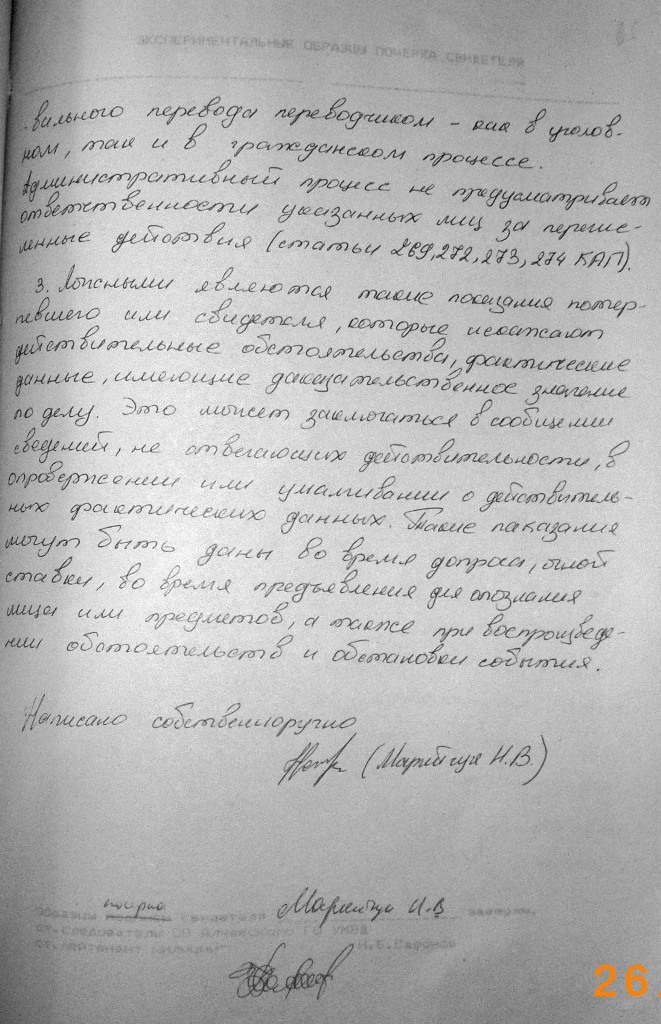 ЭКСПЕРИМЕНТАЛЬНЫЕ ОБРАЗЦЫ ПОЧЕРКА СВИДЕТЕЛЯ
вильного перевода переводчиком – как в уголов-
ном, так и в гражданском процессе.
Административный процесс не предусматривает
ответственности указанных лиц за перечис-
ленные действия (статьи 269, 272, 273, 274 КАП).
3. Ложными являются такие показания потер-
певшего или свидетеля, которые искажают
действительные обстоятельства, фактические
данные, имеющие доказательственное значение
по делу. Это может заключаться в сообщении
сведений, не отвечающих действительности, в
опровержении или умалчивании о действитель-
ных фактических данных. Такие паказания
могут быть даны во время допроса, очной
ставки, во время предъявления для опознания
лица или предметов, а также при воспроизведе-
нии обстоятельств и обстановки события.
Написано собственноручно
(Марийчук Н.В.)
почерка
Образцы свидетеля Марийчук Н.В заверил,
ст.следователь СО Алчевского ГО УМВД
ст.лейтенант милиции
26.